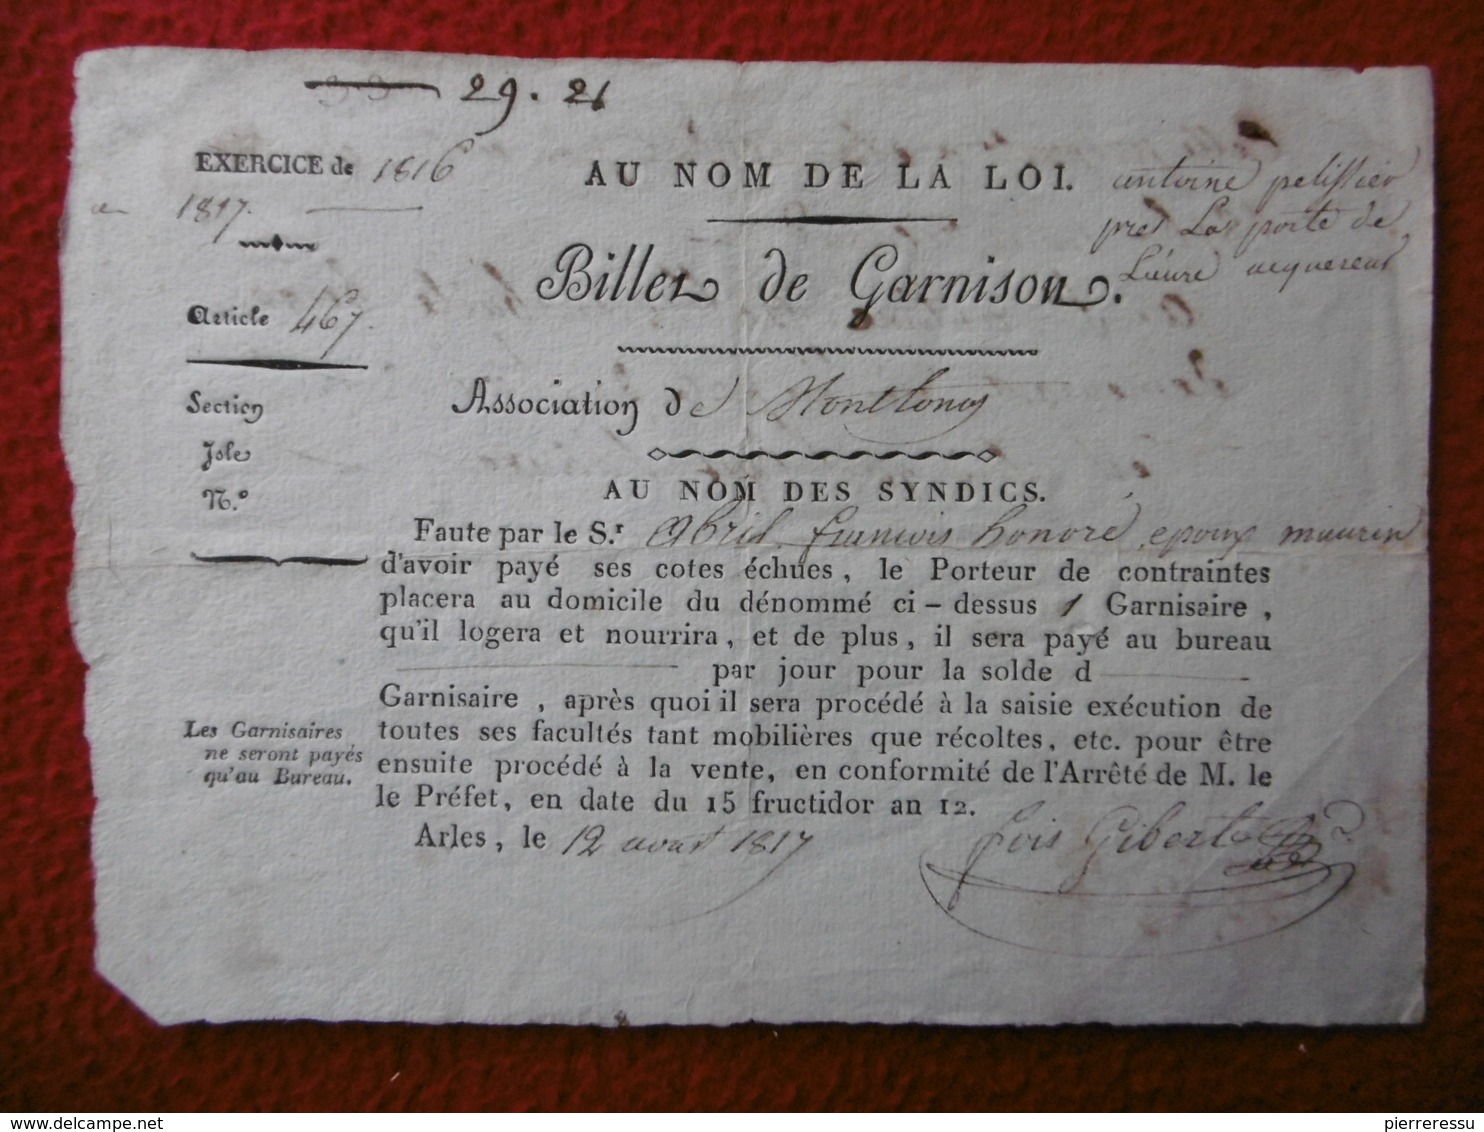 29. 21
EXERCICE de 1816
1817.
Article 467.
Section
Isle
N.º
Les Garnisaires
ne seront payés
qu'au Bureau.
AU NOM DE LA LOI.
antoine pelissier
pres La porte de
acquereur
Billet de Garnison.
Association de Montlong
AU NOM DES SYNDICS.
Faute par le S.r Abril françois honoré epoux maurin
d'avoir payé ses cotes échues, le Porteur de contraintes
placera au domicile du dénommé ci-dessus 1 Garnisaire,
qu'il logera et nourrira, et de plus, il sera payé au bureau
par jour pour la solde d
Garnisaire, après quoi il sera procédé à la saisie exécution de
toutes ses facultés tant mobilières que récoltes, etc. pour être
ensuite procédé à la vente, en conformité de l'Arrêté de M. le
le Préfet, en date du 15 fructidor an 12.
Arles, le 12 aout 1817
fois Gibert
pierreressu